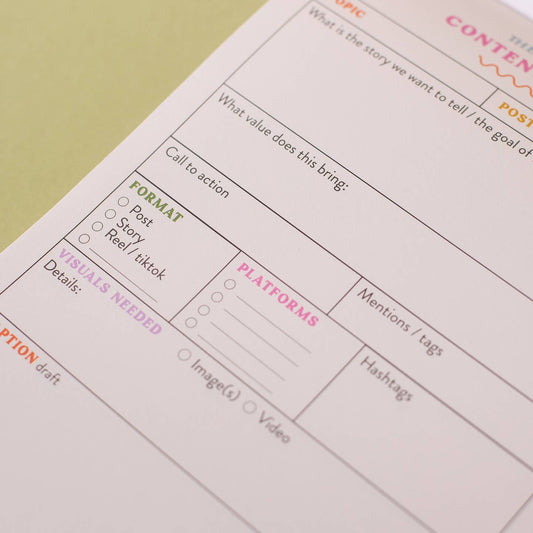 THE
CONTEN
OPIC
What is the story we want to tell / the goal of
POST
What value does this bring:
Call to action
FORMAT
Post
Story
Reel / tiktok
PLATFORMS
Mentions / tags
Hashtags
VISUALS NEEDED
Details:
Image(s)
Video
PTION draft